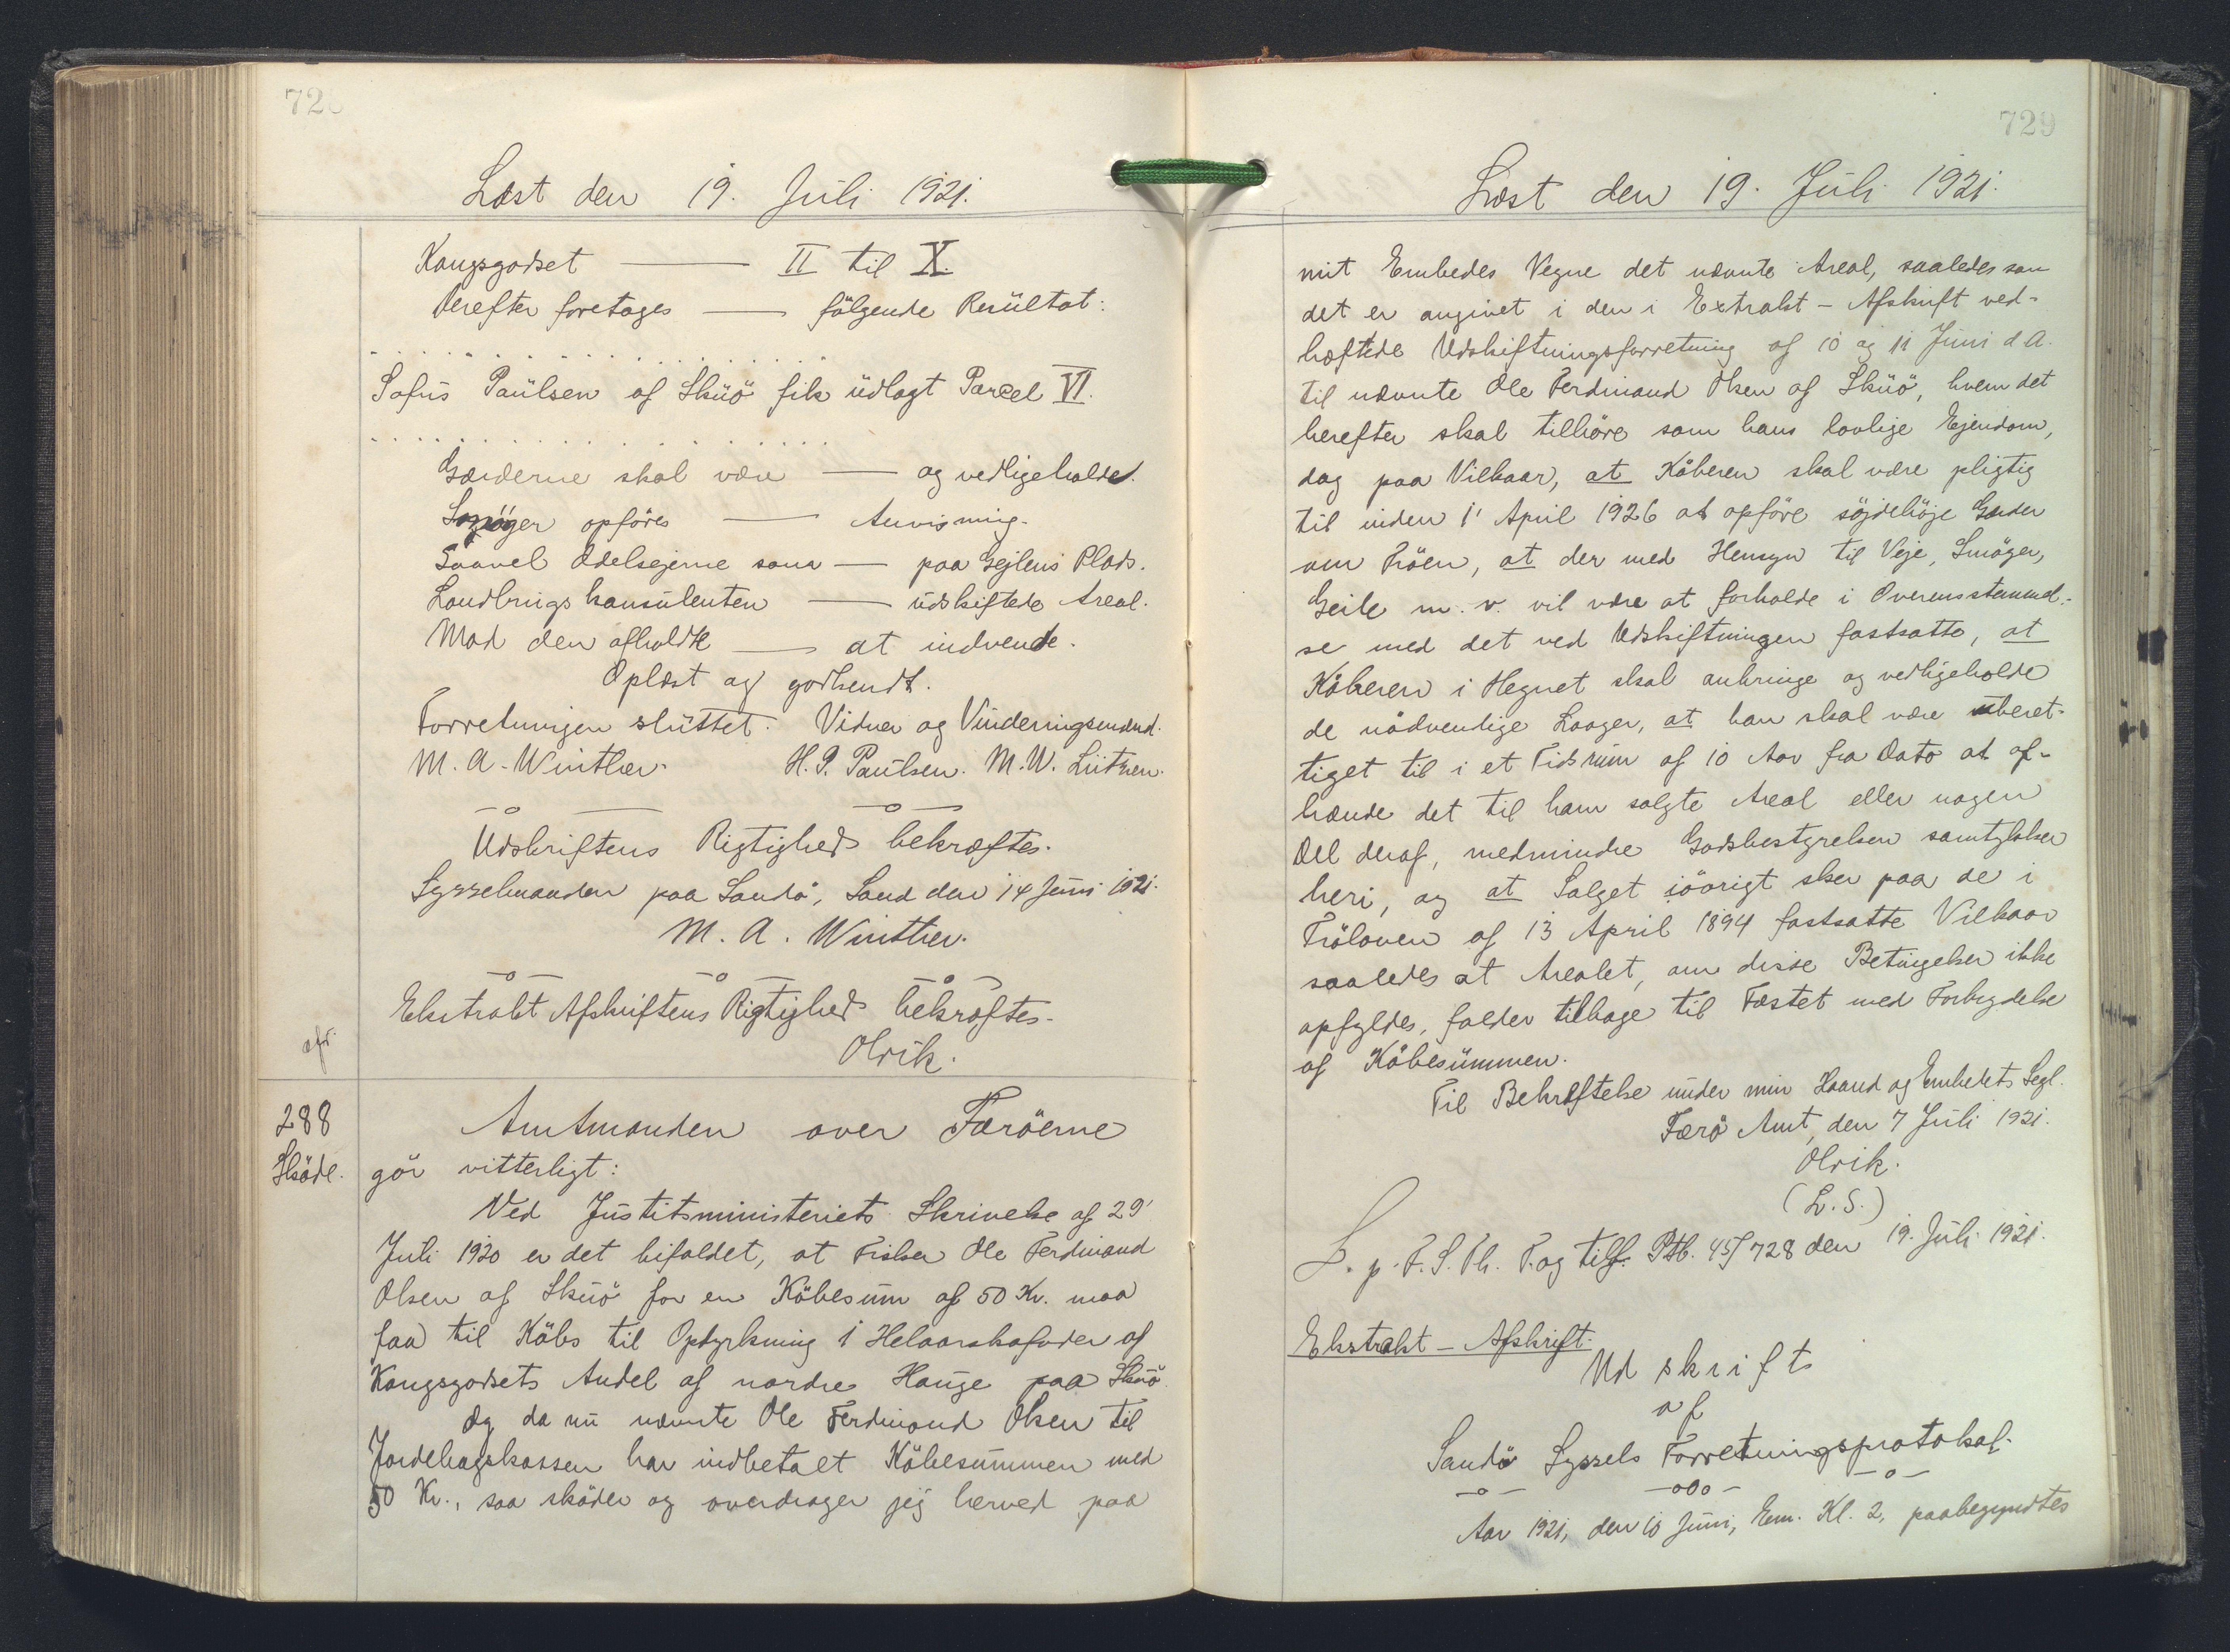 728
Læst den 19. Juli 1921.
Kongsgodset — II til X.
Derefter foretages — fölgende Resultat:
Sofus Paulsen af Skuö fik udlagt Parcel VI.
Gærderne skal være — og vedligeholdes.
Smöger opföres — Anvisning.
Saavel Odelsejerne som — paa Gejlens Plads.
Landbrugskonsulenten — udskiftede Areal.
Mod den afholdte — at indvende.
Oplæst og godkendt.
Forretningen sluttet. Vidner og Vurderingsmænd.
M. A. Winther. H. P. Paulsen. M. W. Lützen.
Udskriftens Rigtighed bekræftes.
Sysselmanden paa Sandö, Sand den 14 Juni 1921.
M. A. Winther.
Ekstrakt Afskriftens Rigtighed bekræftes.
afr.
Olrik.
288
Skøde.
Amtmanden over Færöerne
gör vitterligt:
Ved Justitsministeriets Skrivelse af 29'
Juli 1920 er det bifaldet, at Fisker Ole Ferdinand
Olsen af Skuö for en Köbesum af 50 Kr. maa
faa til Köbs til Opdyrkning 1 Helaarskofoder af
Kongsgodsets Andel af nordre Hauge paa Skuö.
Og da nu nævnte Ole Ferdinand Olsen til
Jordebogskassen har indbetalt Köbesummen med
50 Kr., saa sköder og overdrager jeg herved paa
729
Læst den 19. Juli 1921.
mit Embedes Vegne det nævnte Areal, saaledes som
det er angivet i den i Extrakt-Afskrift ved-
hæftede Udskiftningsforretning af 10 og 11 Juni d. A.
til nævnte Ole Ferdinand Olsen af Skuö, hvem det
herefter skal tilhöre som hans lovlige Ejendom,
dog paa Vilkaar, at Köberen skal være pligtig
til inden 1' April 1926 at opföre söjdehöje Gærder
om Tröen, at der med Hensyn til Veje, Smöger,
Geile m. v. vil være at forholde i Overensstemmel-
se med det ved Udskiftningen fastsatte, at
Köberen i Hegnet skal anbringe og vedligeholde
de nödvendige Laager, at han skal være uberet-
tiget til i et Tidsrum af 10 Aar fra Dato at af-
hænde det til ham solgte Areal eller nogen
Del deraf, medmindre Godsbestyrelsen samtykker
heri, og at Salget iövrigt sker paa de i
Tröloven af 13 April 1894 fastsatte Vilkaar
saaledes at Arealet, om disse Betingelser ikke
opfyldes, falder tilbage til Fæstet med Forbrydelse
af Köbesummen.
Til Bekræftelse under min Haand og Embedets Segl.
Færö Amt, den 7 Juli 1921.
Olrik.
(L. S.)
L. p. F. S. Th. T. og tilf. Ptb. 45/728 den 19. Juli 1921.
Ekstrakt - Afskrift.
Udskrift
af
Sandö Syssels Forretningsprotokol.
Aar 1921, den 10 Juni, Em. Kl. 2, paabegyndtes